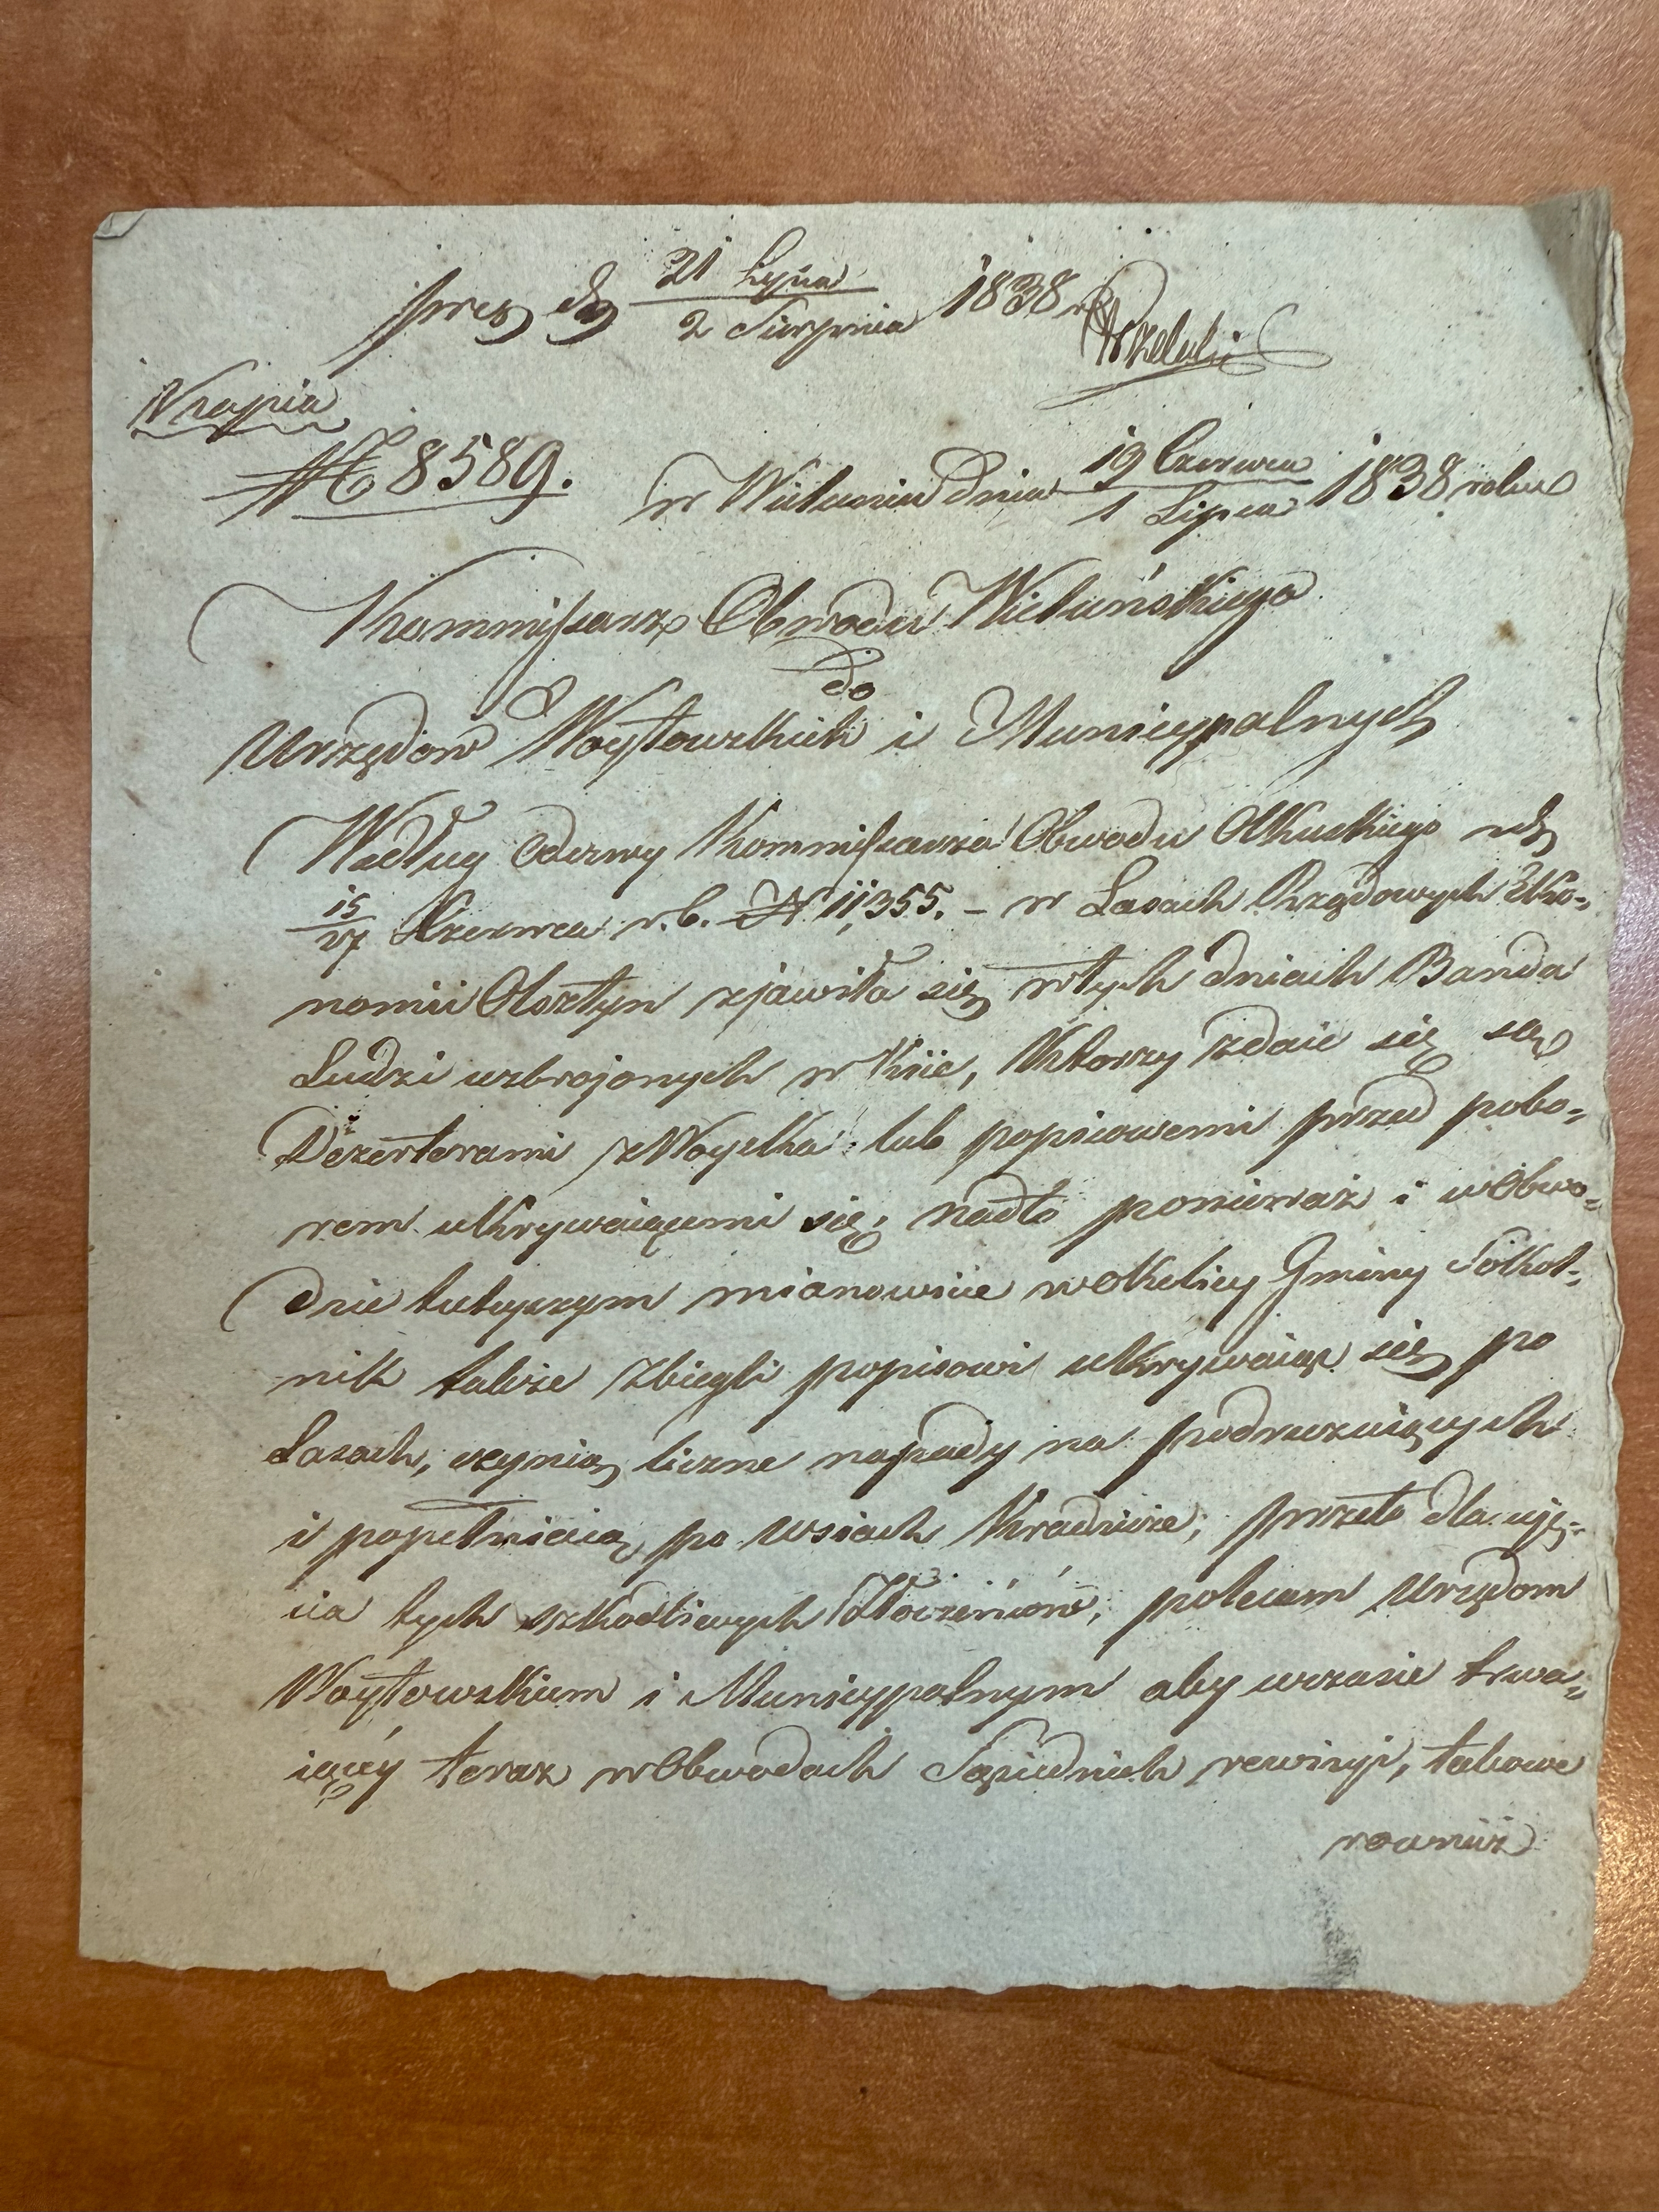 prez dn 21 Lipca / 2 Sierpnia 1838 r
Kopia
N 8589. w Wieluniu Dnia 19 Czerwca / 1 Lipca 1838 roku
Kommissarz Obwodu Wieluńskiego
do
Urzędów Woytowskich i Municypalnych
Według Odezwy Kommissarza Obwodu Olkuskiego z d
15/27 Czerwca r.b. N 11,355. – w Lasach Rządowych Eko=
nomii Olsztyn zjawiła się w tych dniach Banda
Ludzi uzbrojonych w Kiie, Którzy zdaie się są
Dezerterami z Woyska lub popisowemi przed pobo=
rem ukrywaiącemi się; nadto ponieważ i w Obwo=
dzie tuteyszym mianowicie w okolicy Gminy Sokol=
nik także zbiegli popisowi ukrywaiąc się po
Lasach, czynią liczne napady na podrózuiących
i popełniaią po wsiach Kradzieże; przeto dla uję=
cia tych szkodliwych Złoczeńców, polecam Urzędom
Woytowskiem i Municypalnym aby w czasie trwa=
iącéy teraz w Obwodach Sąsiednich rewizyi, takowe
rownież